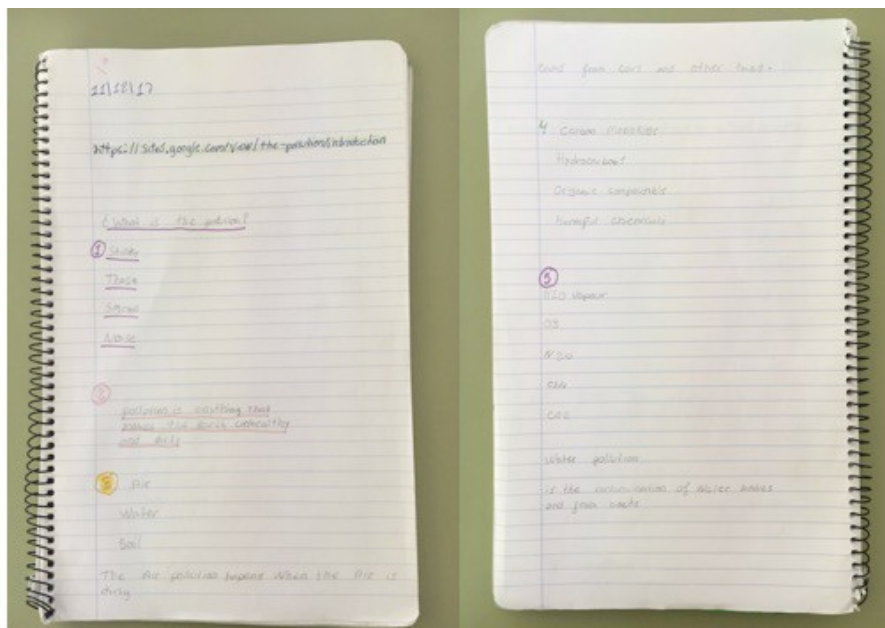 11/18/17
https://sites.google.com/view/the-pollution/introduction
¿What is the polution?
1
Trash
Smoke
Noise
2
pollution is anything that
makes the earth unhealthy
and dirty
3 Air
Water
Soil
The Air pollution hapens When the Air is
dirty
from cars and other
4 Carbon monoxide
Organic compounds
Harmful chemicals
5
H2O Vapour
O3
N2O
CH4
CO2
Water pollution
is the of water bodies
and from